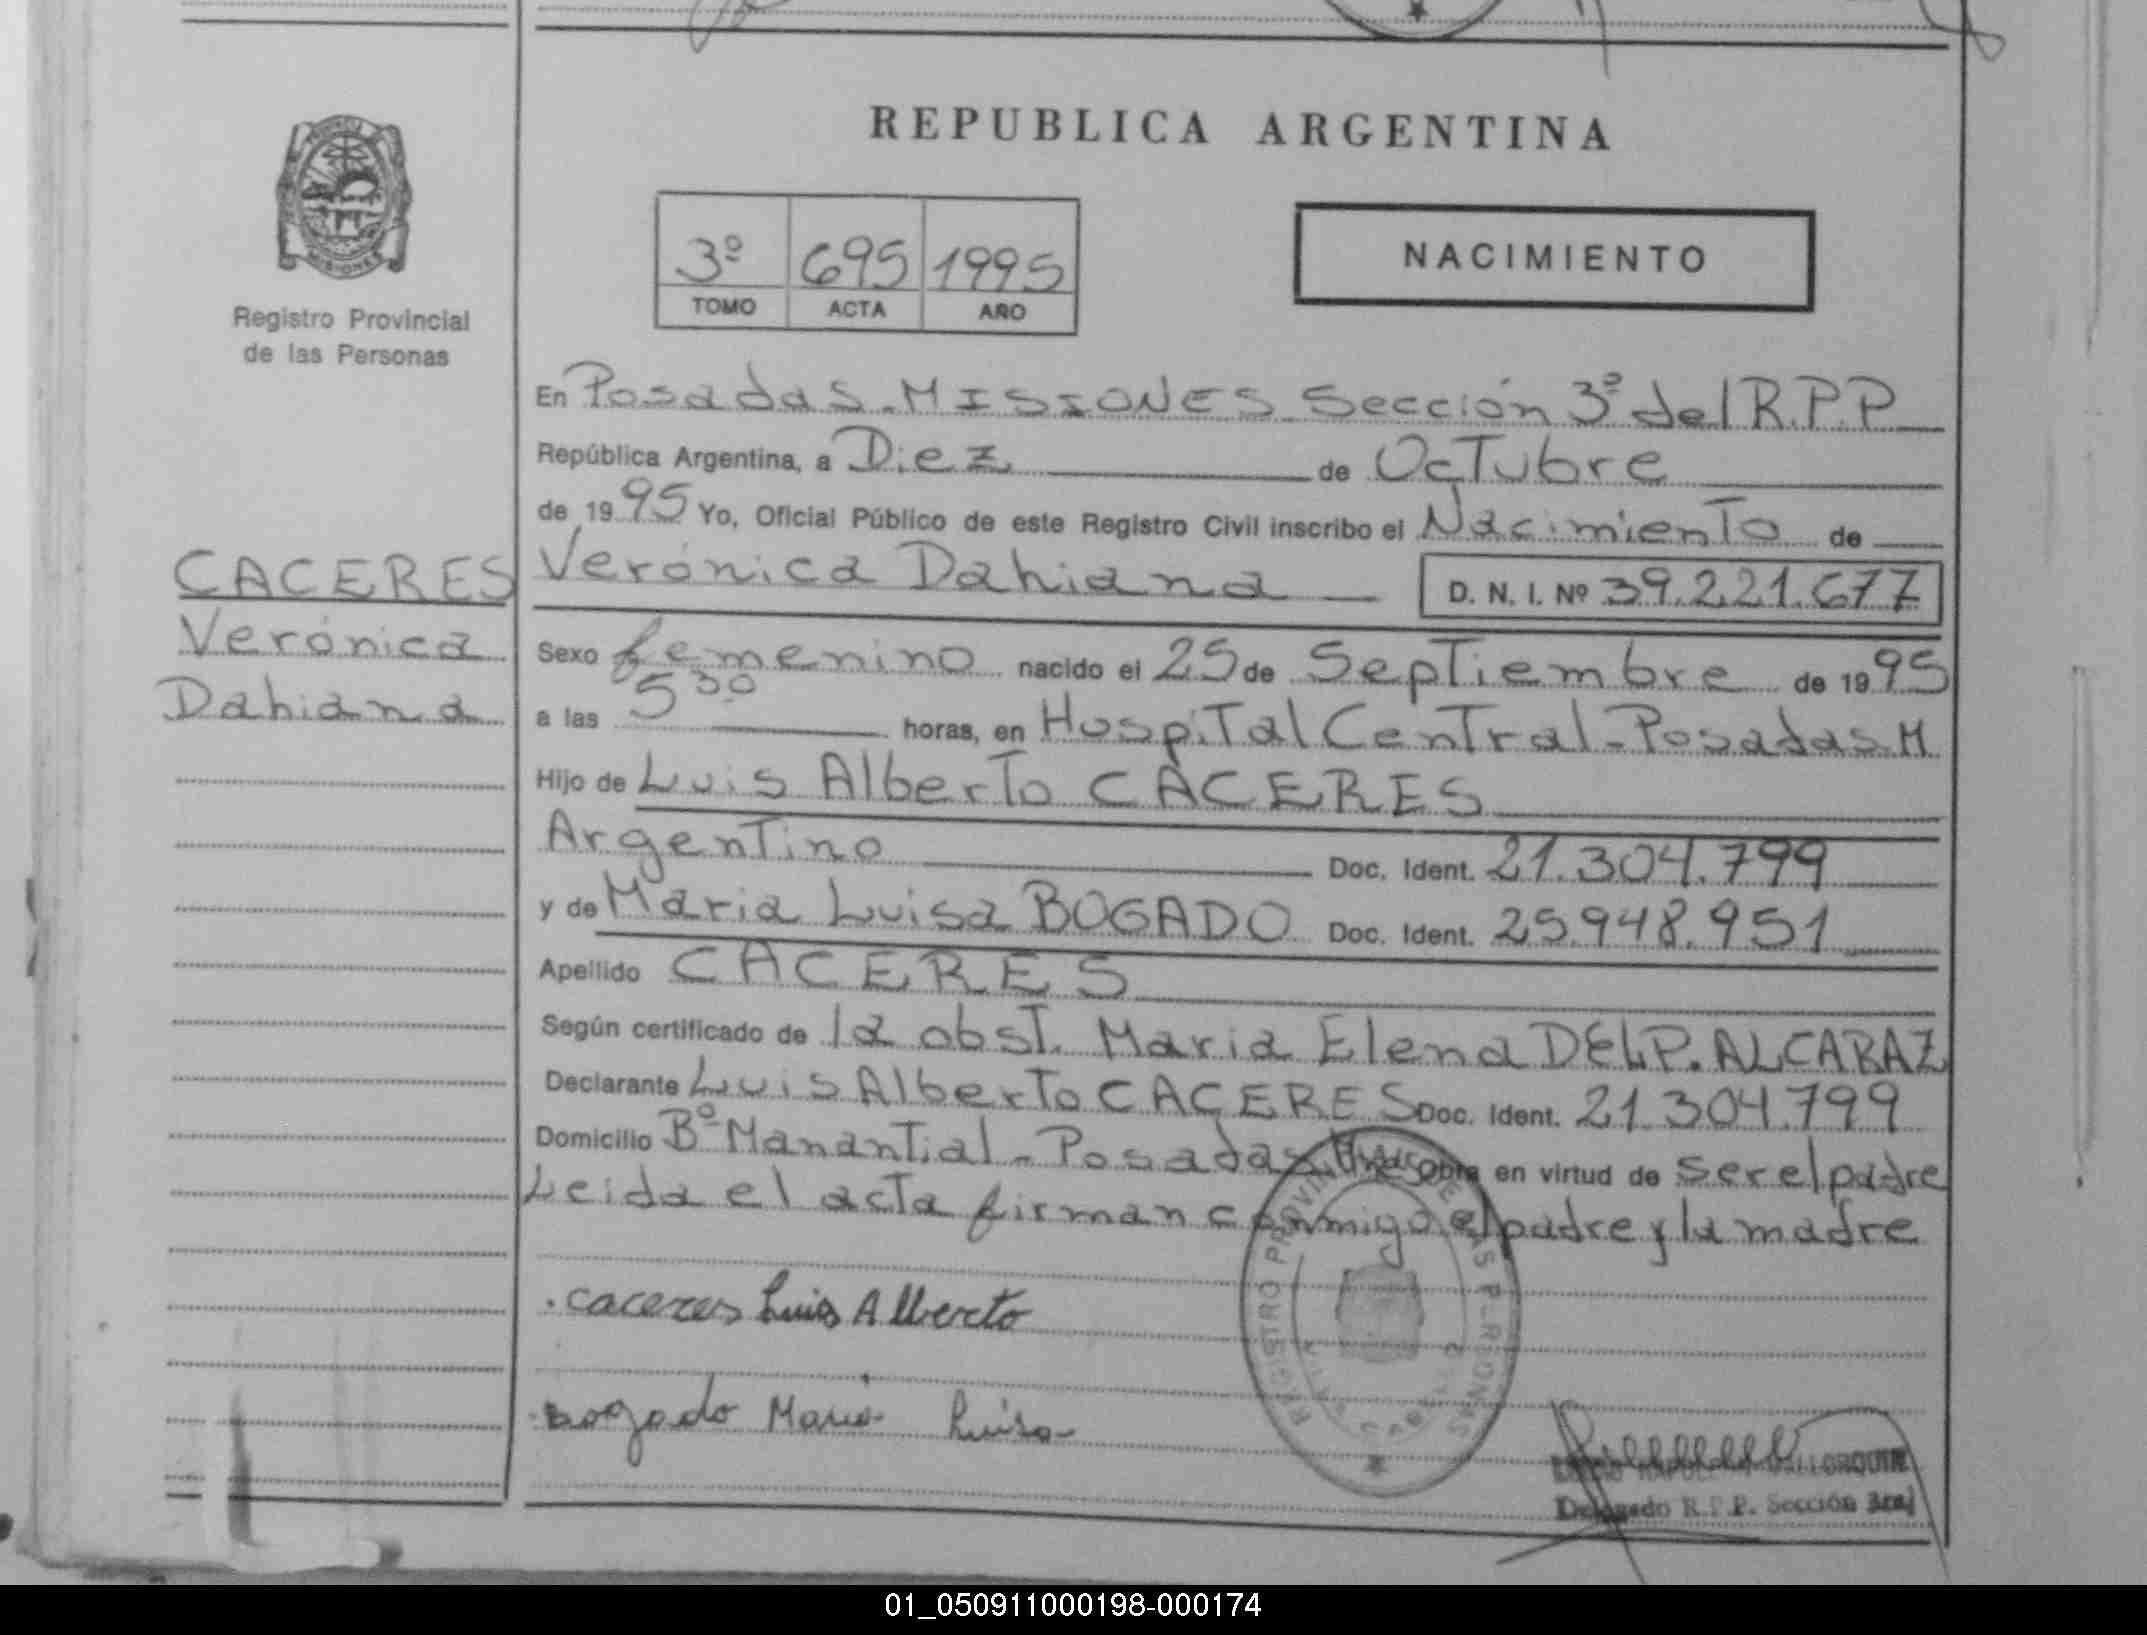 REPUBLICA ARGENTINA
MISIONES
Registro Provincial
de las Personas
3º 695 1995
TOMO ACTA AÑO
NACIMIENTO
En Posadas.MISIONES Sección 3º del R.P.P
República Argentina, a Diez de Octubre
de 1995 Yo, Oficial Público de este Registro Civil inscribo el Nacimiento de
CACERES
Verónica
Dahiana
Verónica Dahiana D. N. I. Nº 39.221.677
Sexo femenino nacido el 25 de Septiembre de 1995
a las 5 30 horas, en Hospital Central-Posadas.M
Hijo de Luis Alberto CACERES
Argentino Doc. Ident. 21.304.799
y de Maria Luisa BOGADO Doc. Ident. 25.948.951
Apellido CACERES
Según certificado de la obst. Maria Elena DEL P. ALCARAZ
Declarante Luis Alberto CACERES Doc. Ident. 21.304.799
Domicilio Bº Manantial-Posadas obra en virtud de ser el padre
Leida el acta firman conmigo el padre y la madre
caceres Luis Alberto
Bogado Maria Luisa
REGISTRO PROVINCIAL DE LAS PERSONAS
Delegado R.P.P. Sección 3ra
01_050911000198-000174